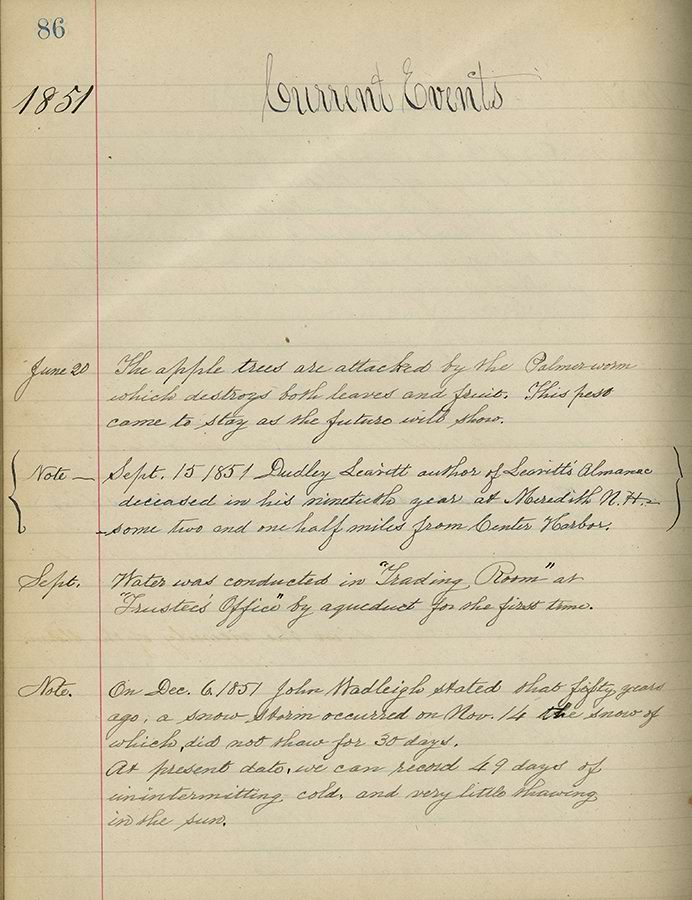 86
1851
Current Events
June 20 The apple trees are attacked by the Palmer worm
which destroys both leaves and fruit. This pest
came to stay as the future will show.
Note — Sept. 15 1851 Dudley Leavitt author of Leavitt's Almanac
deceased in his ninetieth year at Meredith N.H. –
– some two and one half miles from Center Harbor.
Sept. Water was conducted in "Trading Room" at
"Trustee's Office" by aqueduct for the first time.
Note. On Dec. 6, 1851 John Wadleigh stated that fifty years
ago, a snow storm occurred on Nov. 14 the snow of
which did not thaw for 30 days.
At present date, we can record 49 days of
unintermitting cold, and very little thawing
in the sun.